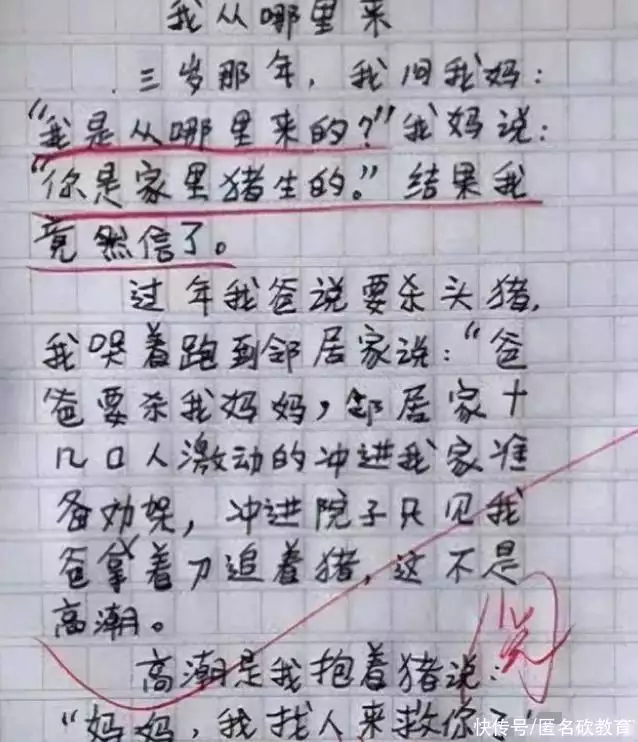 我从哪里来
三岁那年，我问我妈：
“我是从哪里来的？”我妈说：
“你是家里猪生的。”结果我
竟然信了。
过年我爸说要杀头猪，
我哭着跑到邻居家说：“爸
爸要杀我妈妈，邻居家十
几口人激动的冲进我家准
备劝架，冲进院子只见我
爸拿着刀追着猪，这不是
高潮。
阅
高潮是我抱着猪说：
“妈妈，我找人来救你了”
快传号/匿名砍教育